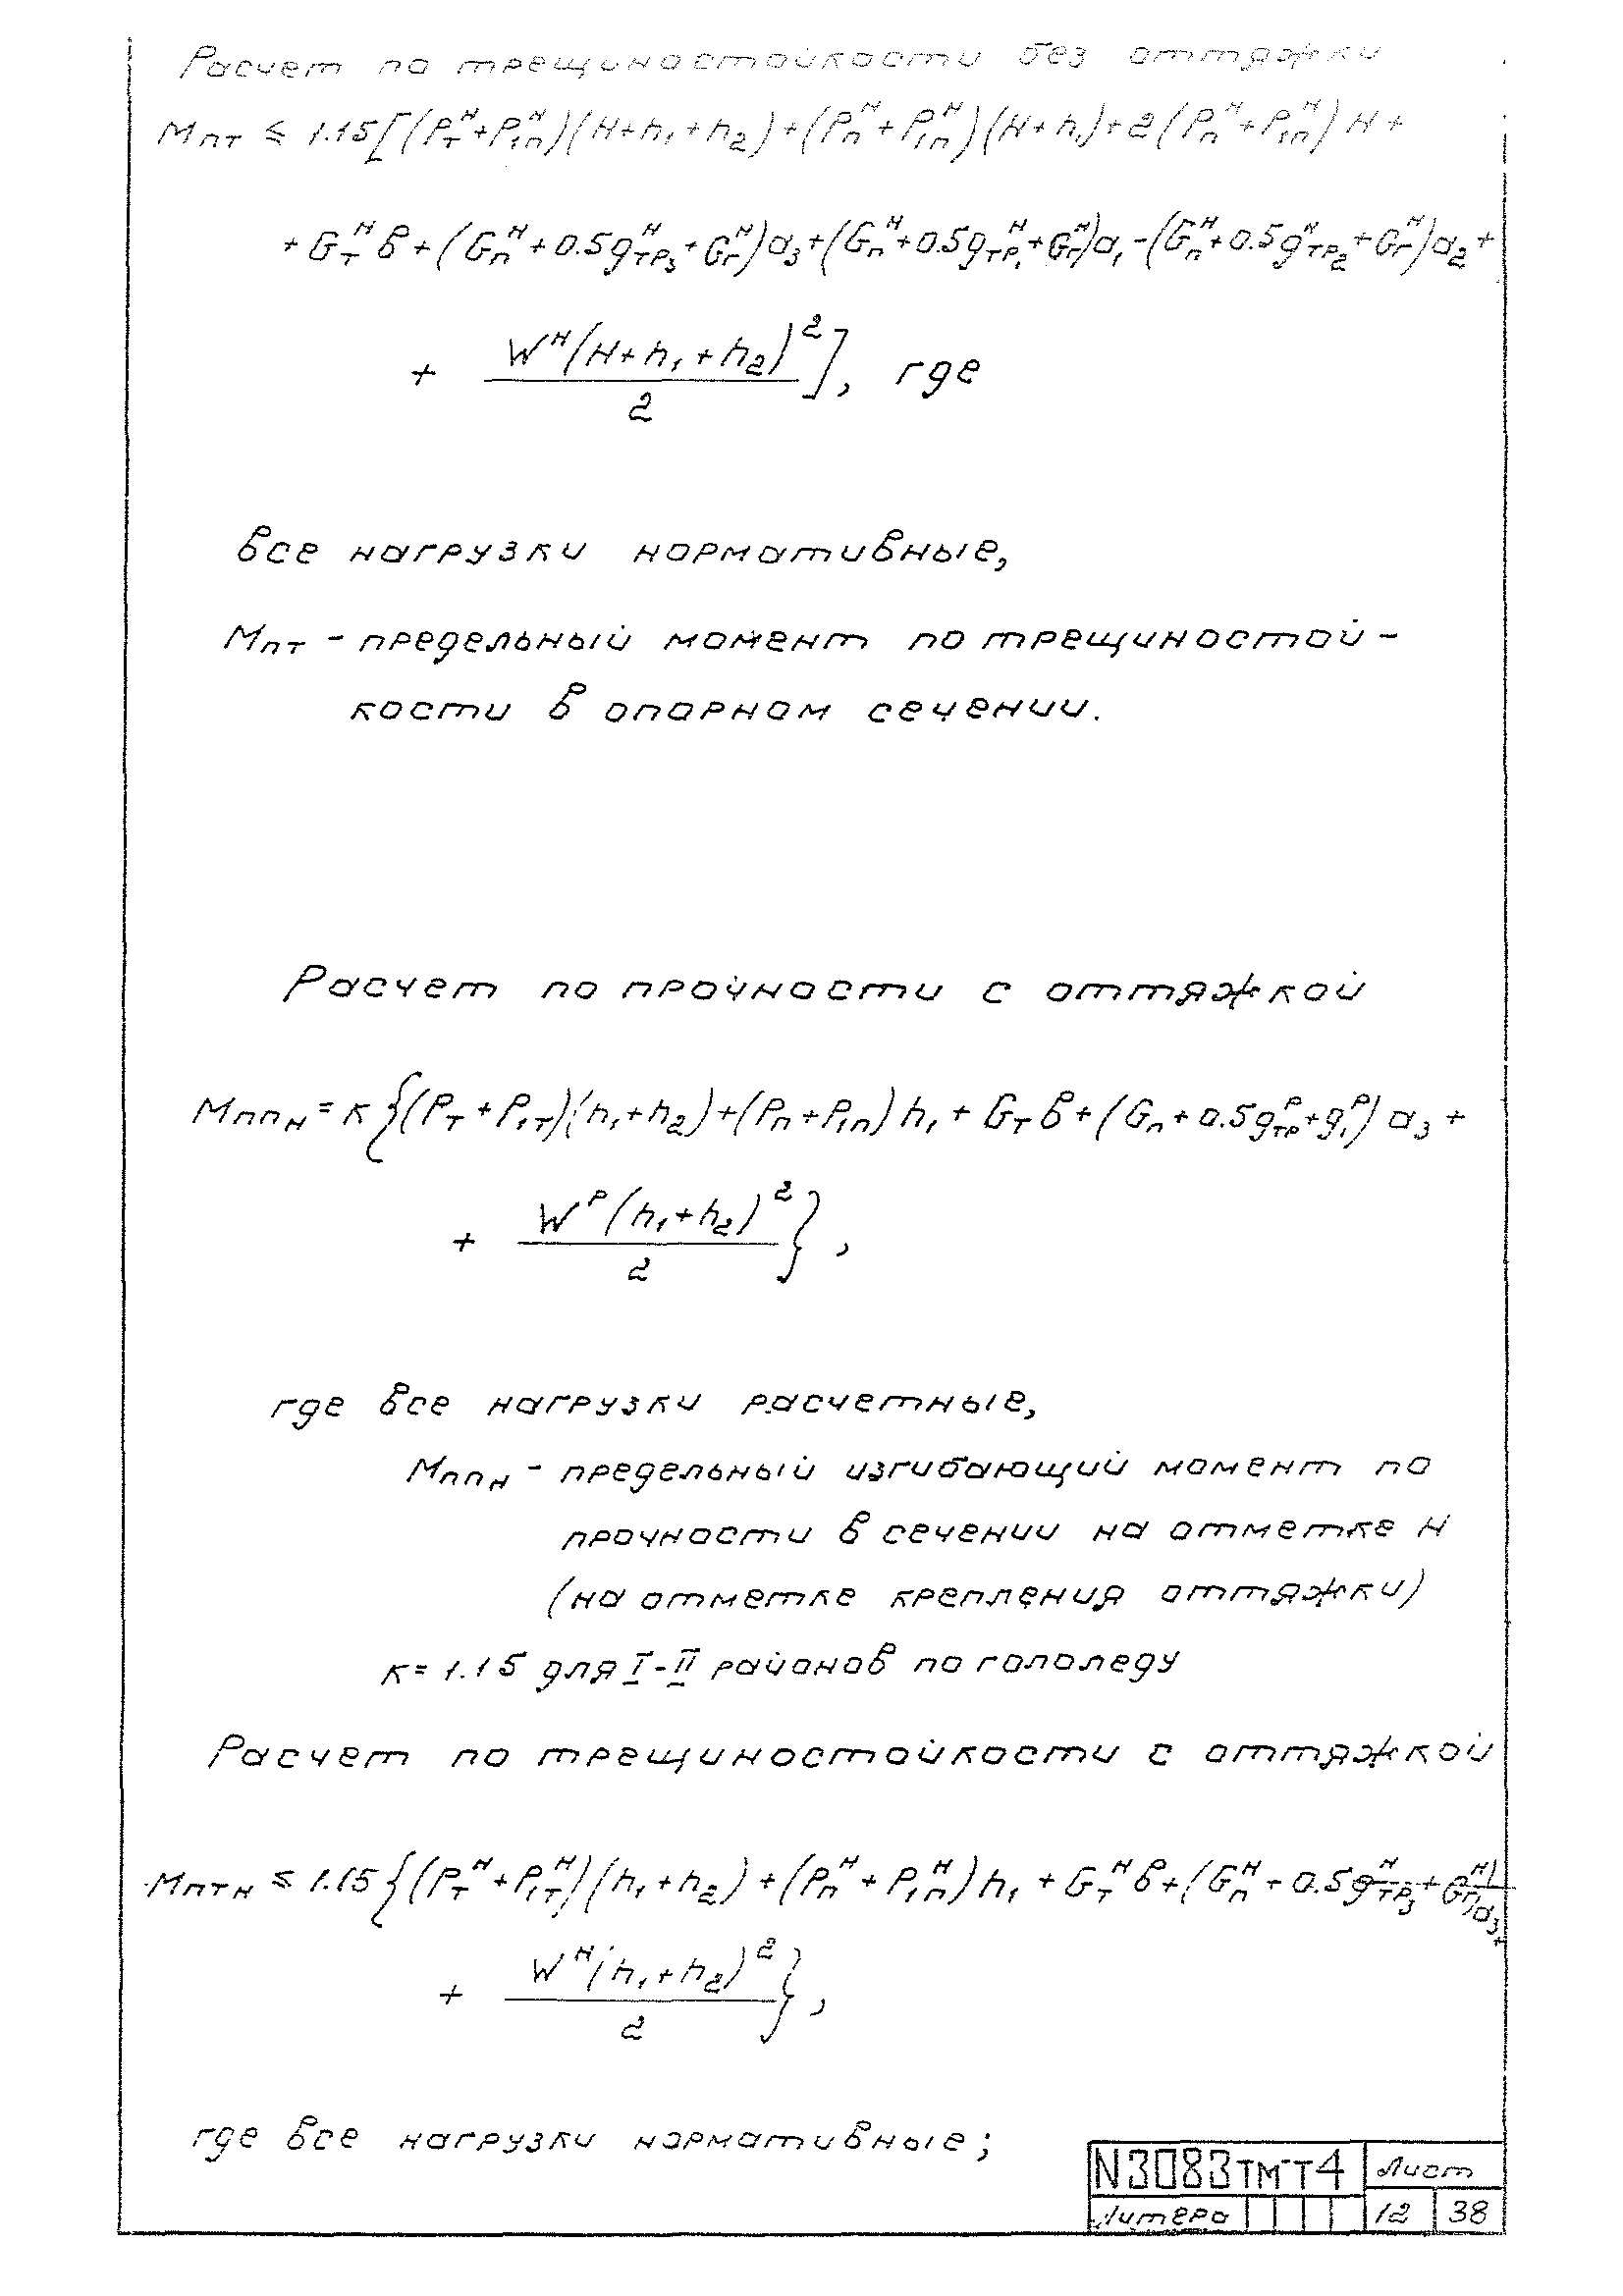 Расчет по трещиностойкости без оттяжки
Mпт ≤ 1.15[(Pтᴴ+P₁пᴴ)(H+h₁+h₂)+(Pпᴴ+P₁пᴴ)(H+h₁)+2(Pпᴴ+P₁пᴴ)H+
+Gтᴴв+(Gпᴴ+0.5gᴴтр₃+Gгᴴ)a₃+(Gпᴴ+0.5gᴴтр₁+Gгᴴ)a₁-(Gпᴴ+0.5gᴴтр₂+Gгᴴ)a₂+
+ Wᴴ(H+h₁+h₂)²/2], где
все нагрузки нормативные,
Mпт - предельный момент по трещиностой-
кости в опорном сечении.
Расчет по прочности с оттяжкой
Mппн = к{(Pт+P₁т)(h₁+h₂)+(Pп+P₁п)h₁+Gтв+(Gп+0.5gᴾтр+g₁ᴾ)a₃+
+ Wᴾ(h₁+h₂)²/2},
где все нагрузки расчетные,
Mппн - предельный изгибающий момент по
прочности в сечении на отметке Н
(на отметке крепления оттяжки)
к=1.15 для I-II районов по гололеду
Расчет по трещиностойкости с оттяжкой
Mптн ≤ 1.15{(Pтᴴ+P₁тᴴ)(h₁+h₂)+(Pпᴴ+P₁пᴴ)h₁+Gтᴴв+(Gпᴴ+0.5gᴴтр₃+Gгᴴ)a₃+
+ Wᴴ(h₁+h₂)²/2},
где все нагрузки нормативные;
N3083тм-т4 Лист
Литера 12 38